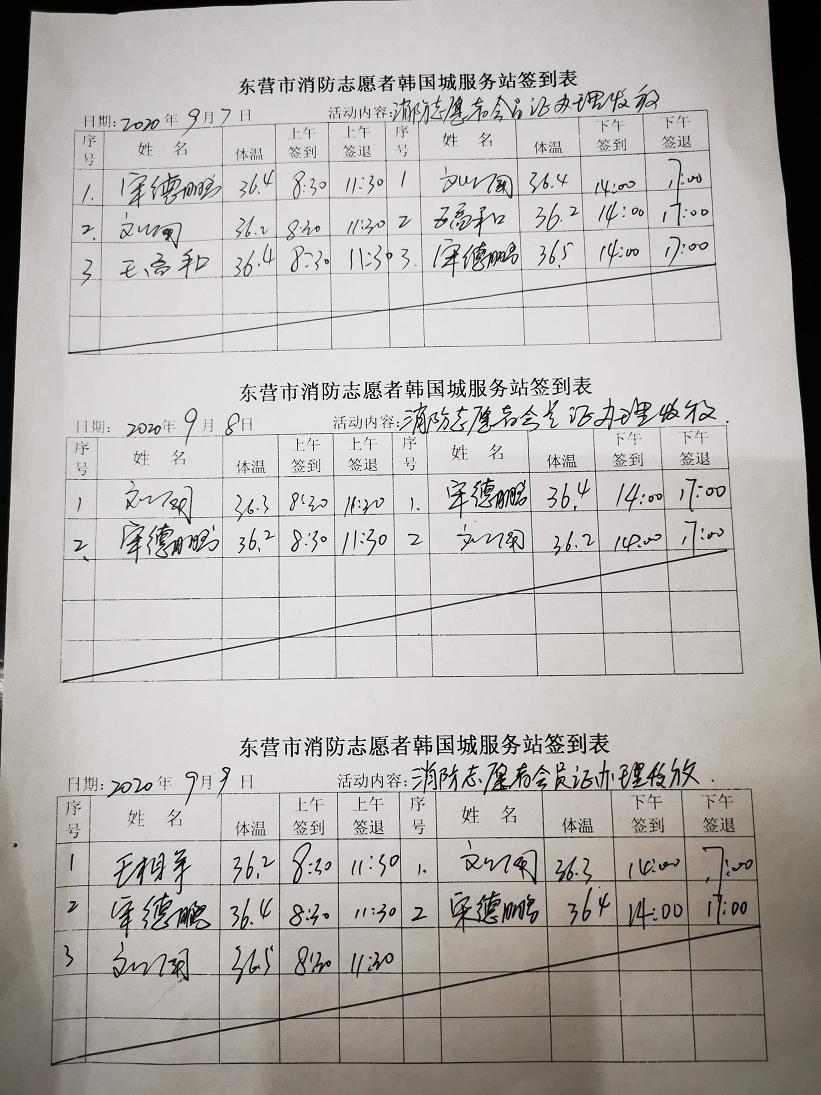 东营市消防志愿者韩国城服务站签到表
日期: 2020 年 9 月 7 日 活动内容: 消防志愿者会员证办理收放
序号 姓 名 体温 上午签到 上午签退 序号 姓 名 体温 下午签到 下午签退
1. 宋德鹏 36.4 8:30 11:30 1 36.4 14:00 17:00
2. 36.2 8:30 11:30 2 36.2 14:00 17:00
3 36.4 8:30 11:30 3. 宋德鹏 36.5 14:00 17:00
东营市消防志愿者韩国城服务站签到表
日期: 2020 年 9 月 8 日 活动内容: 消防志愿者会员证办理收放.
序号 姓 名 体温 上午签到 上午签退 序号 姓 名 体温 下午签到 下午签退
1 36.3 8:30 11:30 1. 宋德鹏 36.4 14:00 17:00
2. 宋德鹏 36.2 8:30 11:30 2 36.2 14:00 17:00
东营市消防志愿者韩国城服务站签到表
日期: 2020 年 9 月 9 日 活动内容: 消防志愿者会员证办理收放.
序号 姓 名 体温 上午签到 上午签退 序号 姓 名 体温 下午签到 下午签退
1 36.2 8:30 11:30 1. 36.3 14:00 17:00
2 宋德鹏 36.4 8:30 11:30 2 宋德鹏 364 14:00 17:00
3 36.5 8:30 11:30